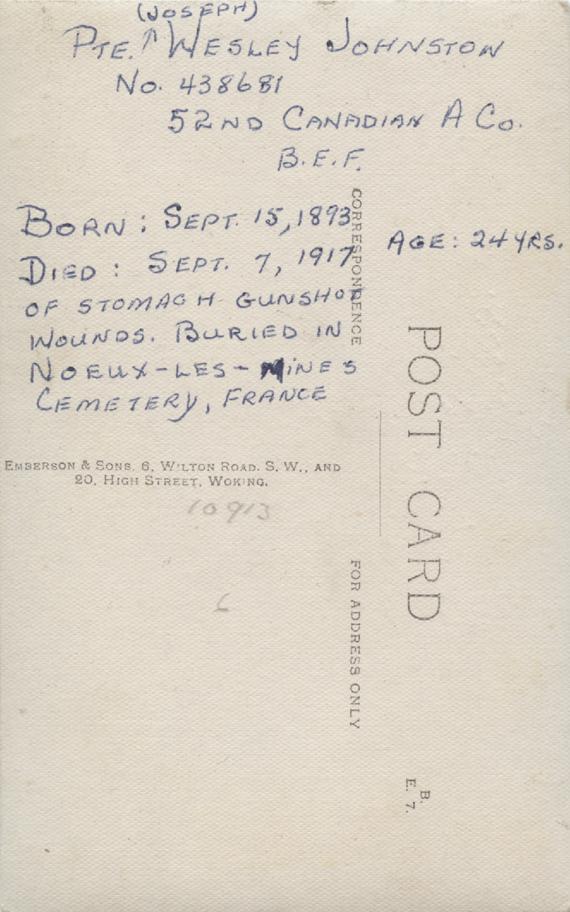 (JOSEPH)
PTE. ↑ WESLEY JOHNSTON
No. 438681
52ND CANADIAN A Co.
B.E.F.
BORN: SEPT. 15, 1893
AGE: 24 YRS.
DIED: SEPT. 7, 1917
OF STOMACH GUNSHOT
WOUNDS. BURIED IN
NOEUX-LES-MINES
CEMETERY, FRANCE
CORRESPONDENCE
POST CARD
EMBERSON & SONS, 6, WILTON ROAD. S. W., AND
20, HIGH STREET, WOKING.
10913
6
FOR ADDRESS ONLY
B.
E. 7.